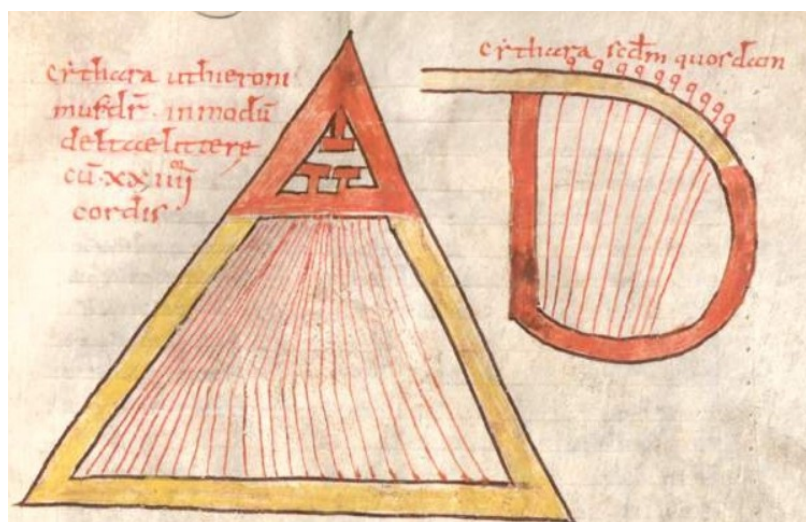 cythara uthieroni
muſ dr̄. inmodū
deltae litterę
cū·xxiiii
cordis·
cythara scdm quosdam